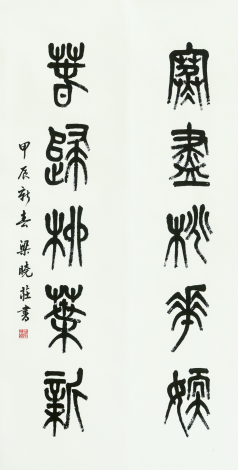 寒盡桃華嫩
春歸柳葉新
甲辰新春 梁曉莊書